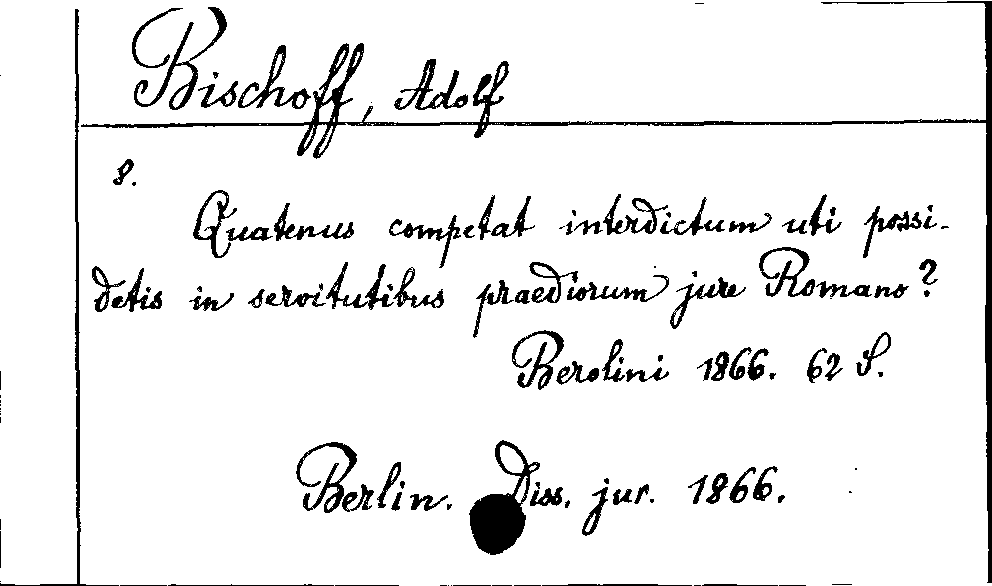 Bischoff, Adolf
8.
Quatenus competat interdictum uti possi-
detis in servitutibus praediorum jure Romano?
Berolini 1866. 62 S.
Berlin. Diss. jur. 1866.